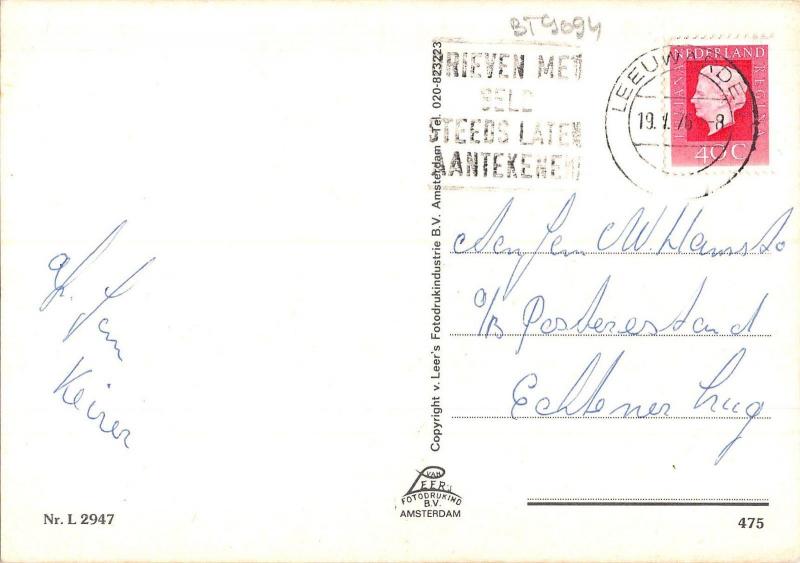 BT9094
RIEVEN MET
GELD
STEEDS LATEN
AANTEKENEN
LEEUWARDEN
19.1.76 - 8
NEDERLAND
JULIANA REGINA
40c
Aan Fam W. Hamst
c/o Posterestand
Echtener brug
af. Fam
Keizer
Copyright v. Leer's Fotodrukindustrie B.V. Amsterdam Tel. 020-823223
VAN
LEER'S
FOTODRUKIND
B.V.
AMSTERDAM
Nr. L 2947
475